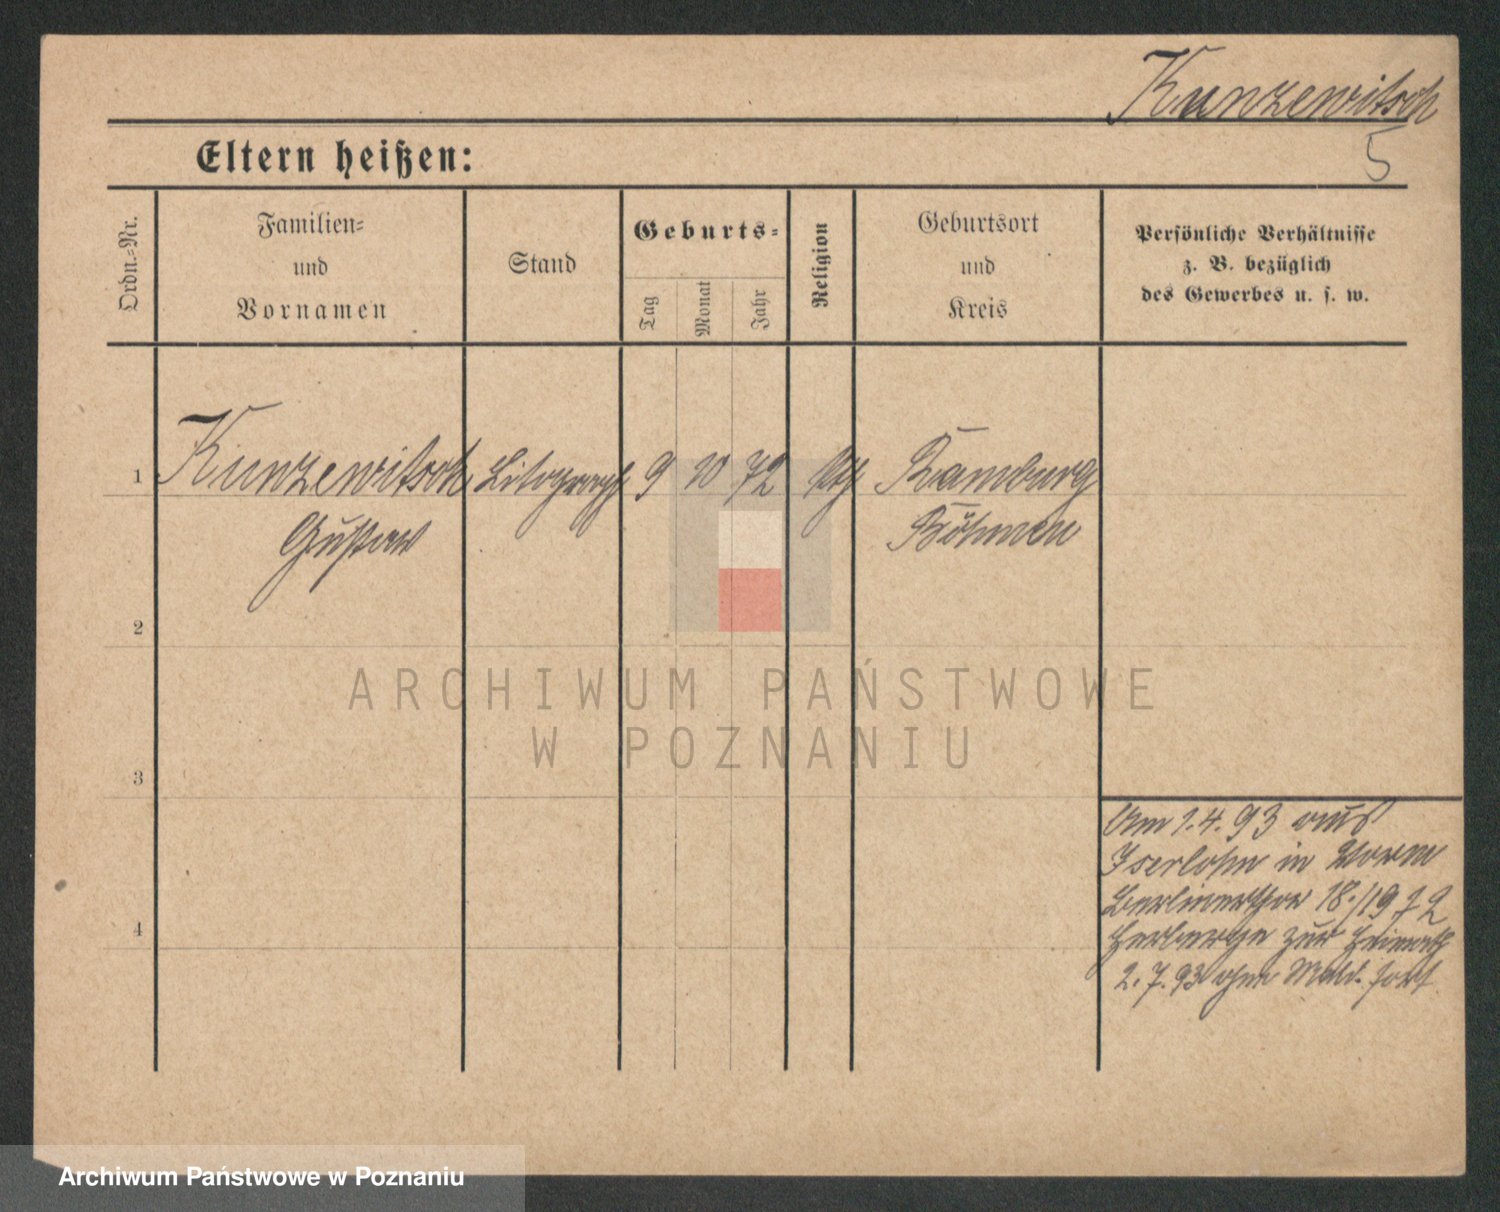 Kunzewitsch
5
Eltern heißen:
Ordn.=Nr.
Familien=
und
Vornamen
Stand
Geburts=
Tag
Monat
Jahr
Religion
Geburtsort
und
Kreis
Persönliche Verhältnisse
z. B. bezüglich
des Gewerbes u. s. w.
1 Kunzewitsch Litograph 9 10 72 kth Ramburg
Gustav Böhmen
2
3
4
Am 1.4.93 aus
Iserlohn in
Berlinerthor 18./19
Herberge zur Heimath
2.7.93 ohne Meld. fort
ARCHIWUM PAŃSTWOWE
W POZNANIU
Archiwum Państwowe w Poznaniu